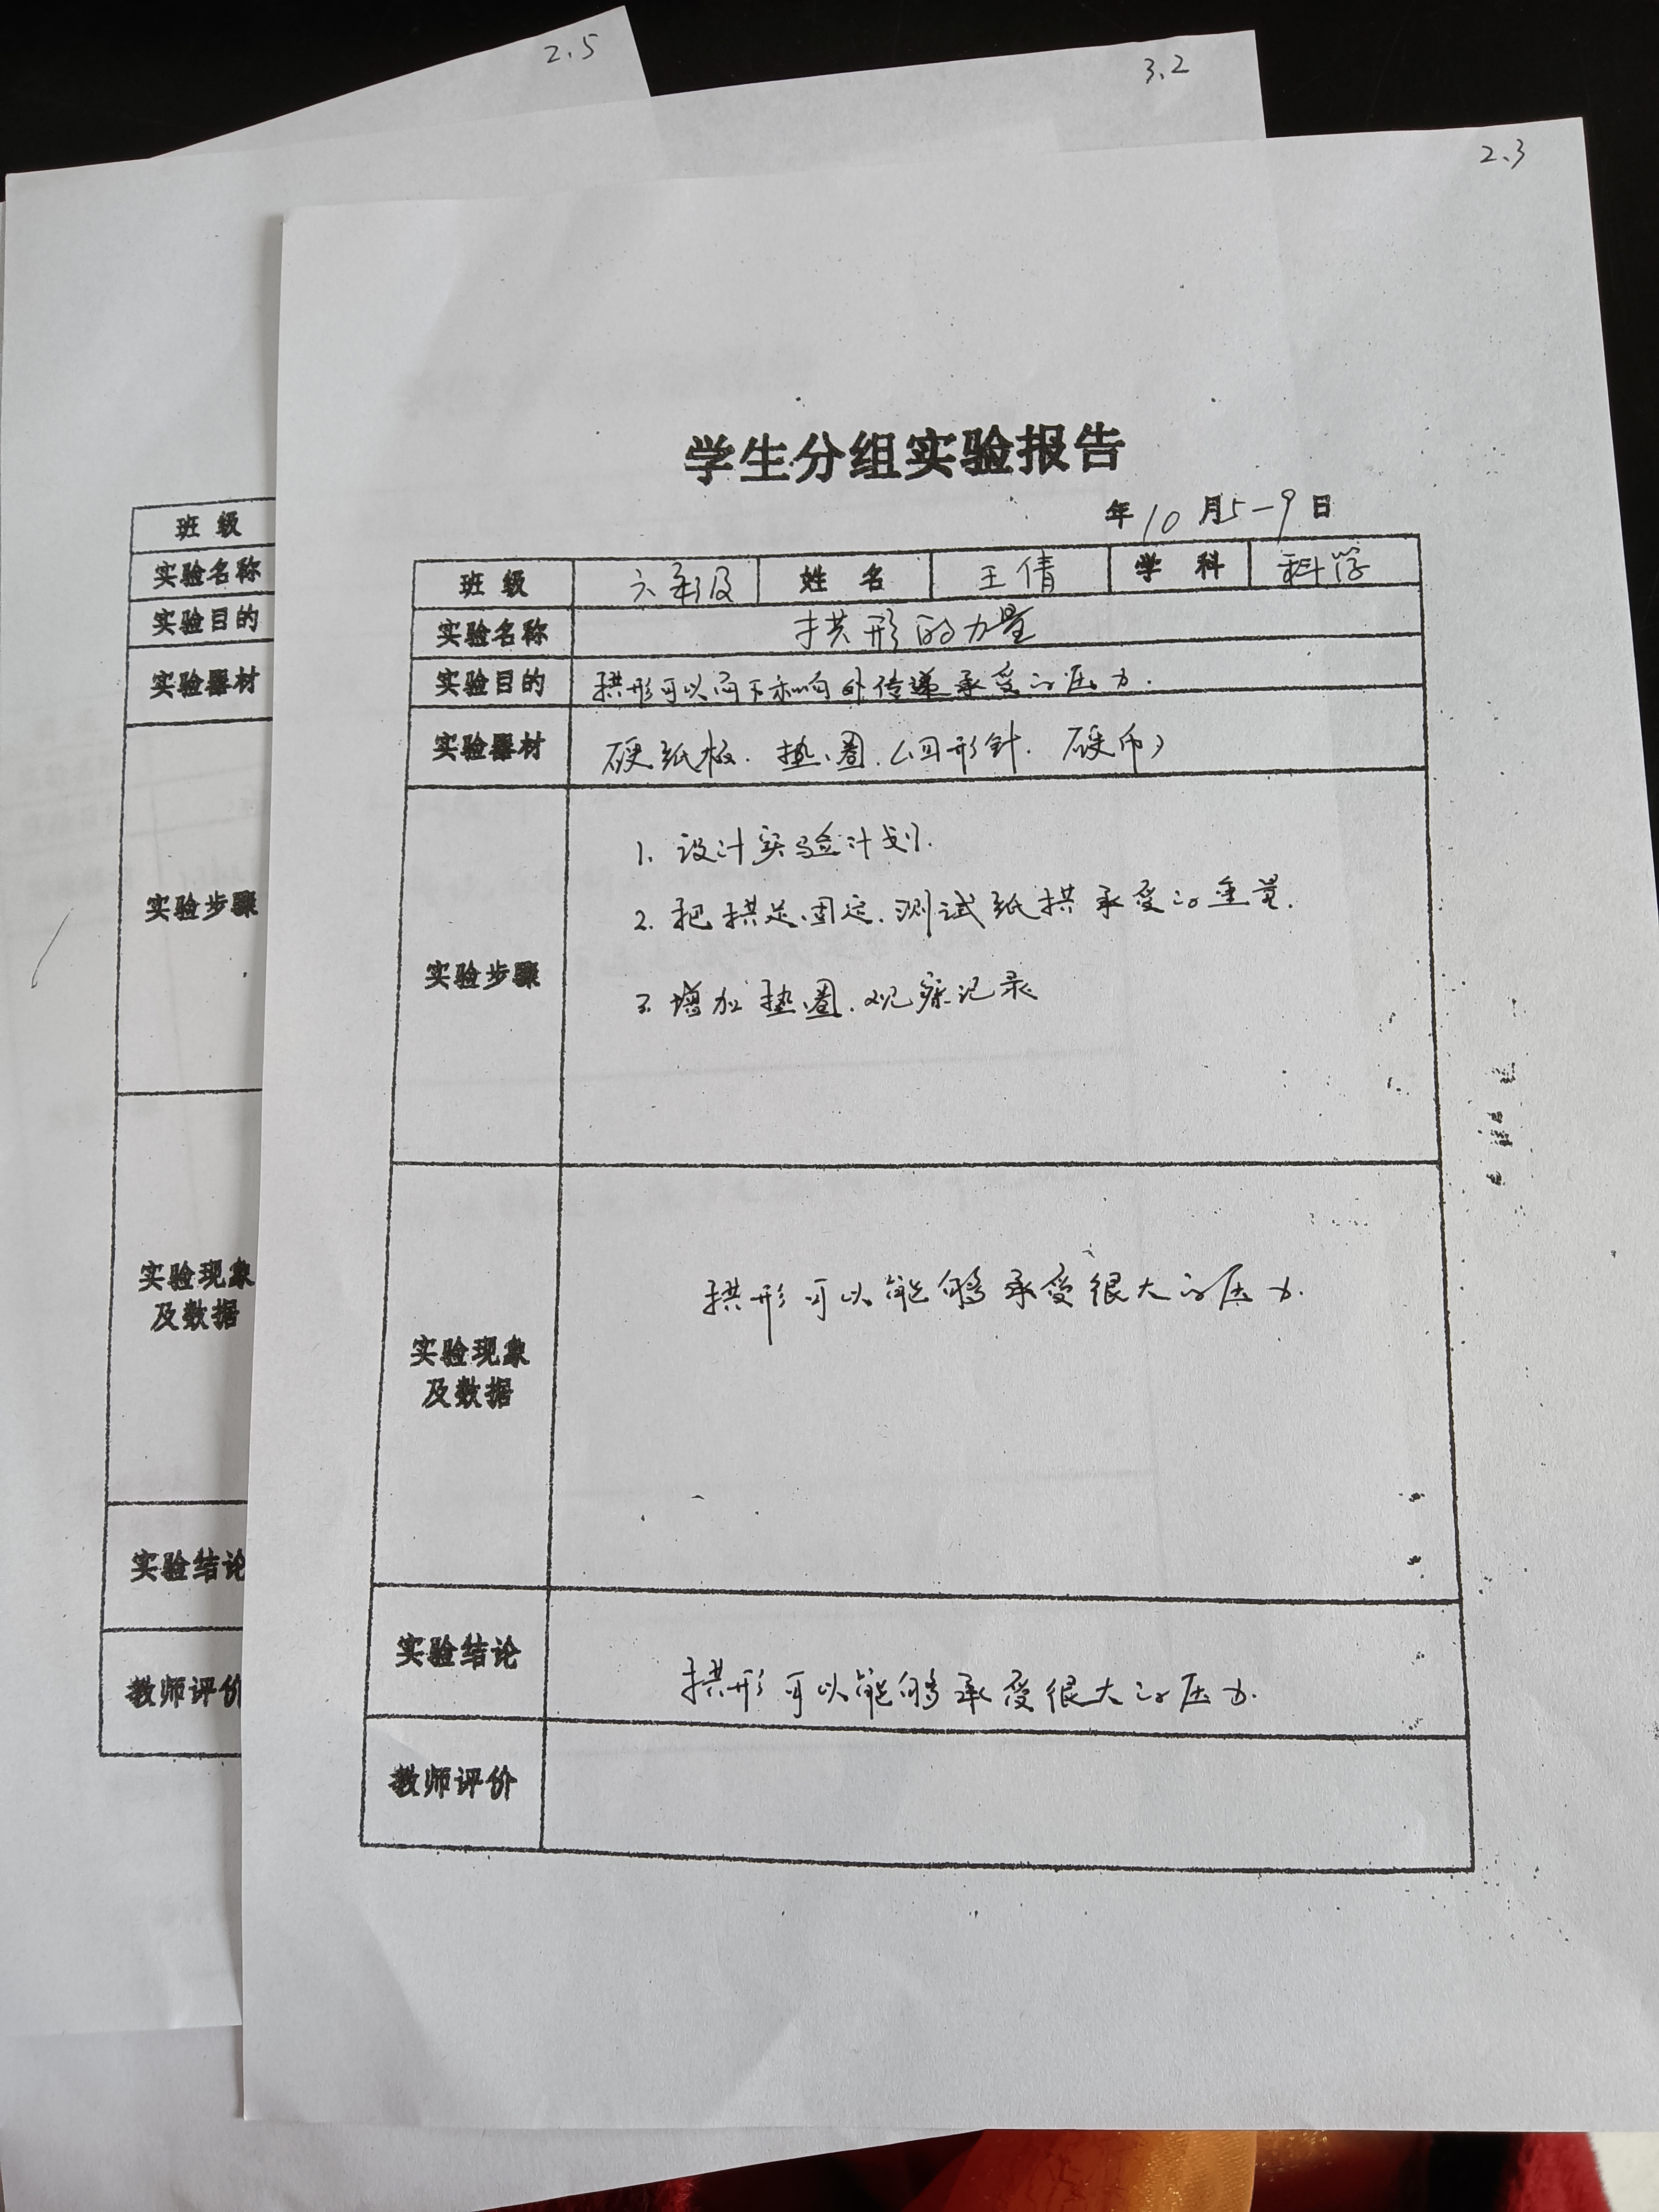 2.5
3.2
2.3
学生分组实验报告
年 10 月 5-9 日
班级 六年级 姓名 王倩 学科 科学
实验名称 拱形的力量
实验目的 拱形可以向下和向外传递承受的压力.
实验器材 硬纸板. 垫圈.(回形针. 硬币)
实验步骤
1. 设计实验计划.
2. 把拱足固定.测试纸拱承受的重量.
3. 增加垫圈.观察记录
实验现象
及数据
拱形可以能够承受很大的压力.
实验结论 拱形可以能够承受很大的压力.
教师评价
班级
实验名称
实验目的
实验器材
实验步骤
实验现象
及数据
实验结论
教师评价